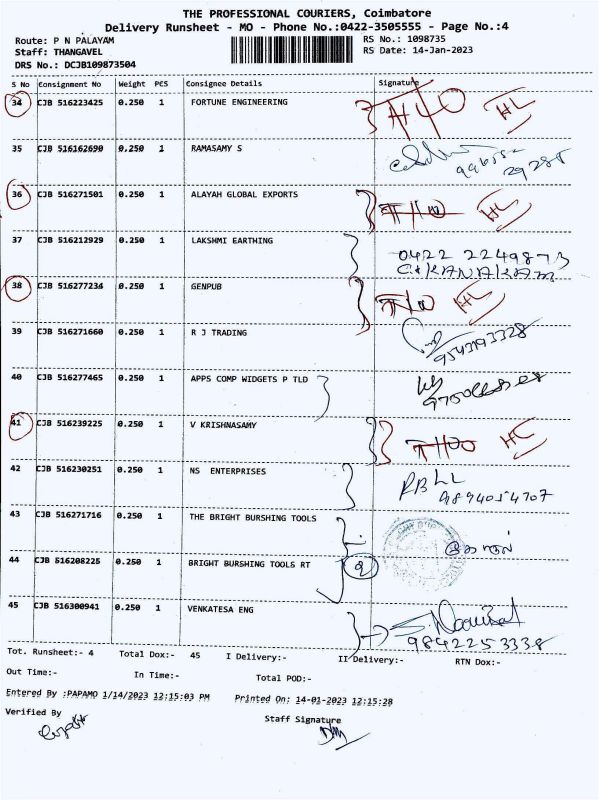 THE PROFESSIONAL COURIERS, Coimbatore
Delivery Runsheet - MO - Phone No.:0422-3505555 - Page No.:4
Route: P N PALAYAM RS No.: 1098735
Staff: THANGAVEL RS Date: 14-Jan-2023
DRS No.: DCJB109873504
S No Consignment No Weight PCS Consignee Details Signature
34 CJB 516223425 0.250 1 FORTUNE ENGINEERING
35 CJB 516162690 0.250 1 RAMASAMY S
29288
36 CJB 516271501 0.250 1 ALAYAH GLOBAL EXPORTS
37 CJB 516212929 0.250 1 LAKSHMI EARTHING
0422 2249873
38 CJB 516277234 0.250 1 GENPUB
39 CJB 516271660 0.250 1 R J TRADING
9543193328
40 CJB 516277465 0.250 1 APPS COMP WIDGETS P TLD
41 CJB 516239225 0.250 1 V KRISHNASAMY
42 CJB 516230251 0.250 1 NS ENTERPRISES
43 CJB 516271716 0.250 1 THE BRIGHT BURSHING TOOLS
44 CJB 516208225 0.250 1 BRIGHT BURSHING TOOLS RT
45 CJB 516300941 0.250 1 VENKATESA ENG
9842253338
Tot. Runsheet:- 4 Total Dox:- 45 I Delivery:- II Delivery:- RTN Dox:-
Out Time:- In Time:- Total POD:-
Entered By :PAPAMO 1/14/2023 12:15:03 PM Printed On: 14-01-2023 12:15:28
Verified By Staff Signature